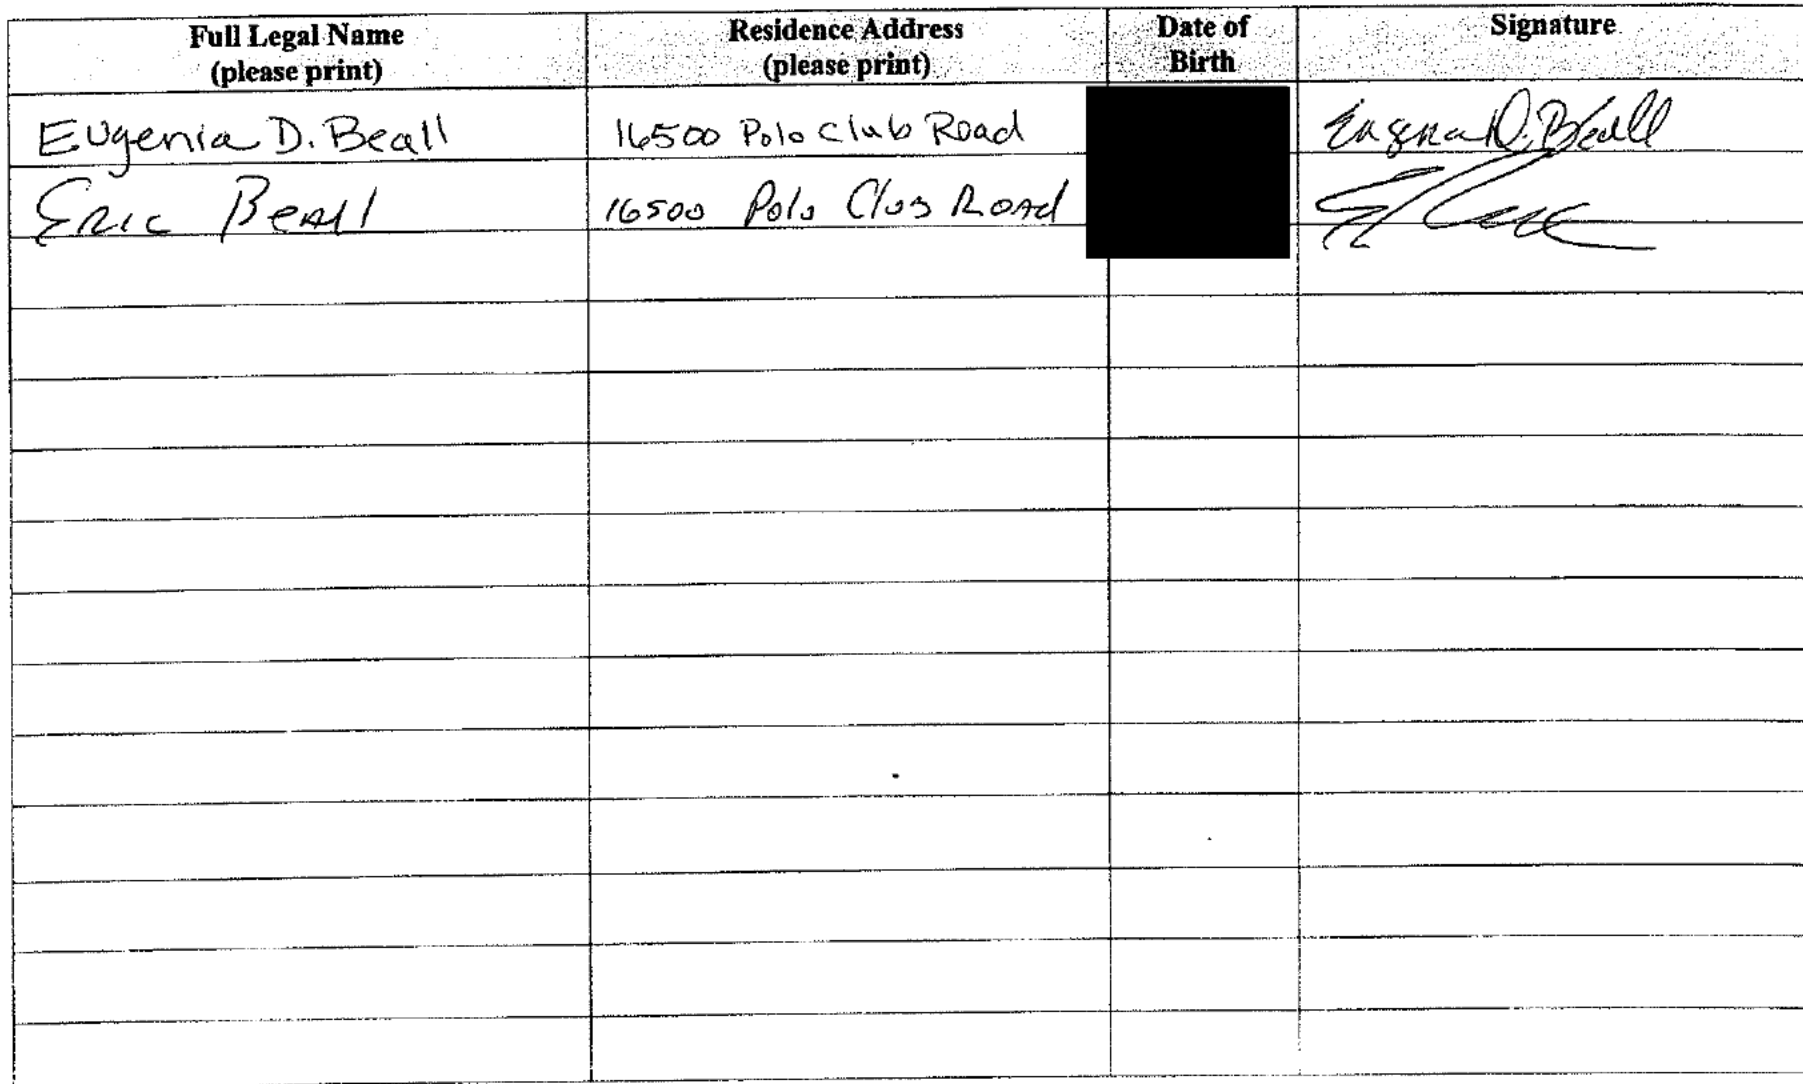 Full Legal Name (please print) Residence Address (please print) Date of Birth Signature
Eugenia D. Beall 16500 Polo Club Road Eugenia D. Beall
Eric Beall 16500 Polo Club Road